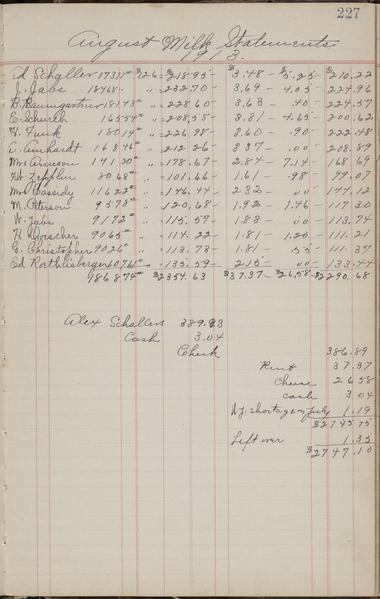 227
August Milk Statements
1913.
A. Schaller 17377 $1.26 = $218.95 - $3.48 - $5.25 - $210.22
J. Jabs 18468 " = 232.70 - 3.69 - 4.05 - 224.96
B. Baumgartner 18143 " = 228.60 - 3.63 - .40 - 224.57
E. Schurch 16554 " = 208.58 - 3.31 - 4.65 - 200.62
H. Funk 18014 " = 226.98 - 3.60 - .90 - 222.48
C. Amhardt 16846 " = 212.26 - 3.37 - .00 - 208.89
Mrs Arneson 14180 " = 178.67 - 2.84 - 7.14 - 168.69
W. Zepplin 8068 " = 101.66 - 1.61 - .98 - 99.07
Mrs Cassidy 11622 " = 146.44 - 2.32 - .00 - 144.12
M. Peterson 9578 " = 120.68 - 1.92 - 1.46 - 117.30
W. Jabs 9172 " = 115.57 - 1.83 - .00 - 113.74
H. Dorscher 9065 " = 114.22 - 1.81 - 1.20 - 111.21
G. Christopher 9026 " = 113.73 - 1.81 - .55 - 111.37
Ed Rothlisberger 10761 " = 135.59 - 2.15 - .00 - 133.44
186874 $2354.63 $37.37 - $26.58 - $2290.68
Alex Schallers 389.93
Cash 3.04
Check 386.89
Rent 37.37
Cheese 26.58
Cash 3.04
W.J. shortage in July 1.19
$2745.75
Left over 1.35
$2747.10